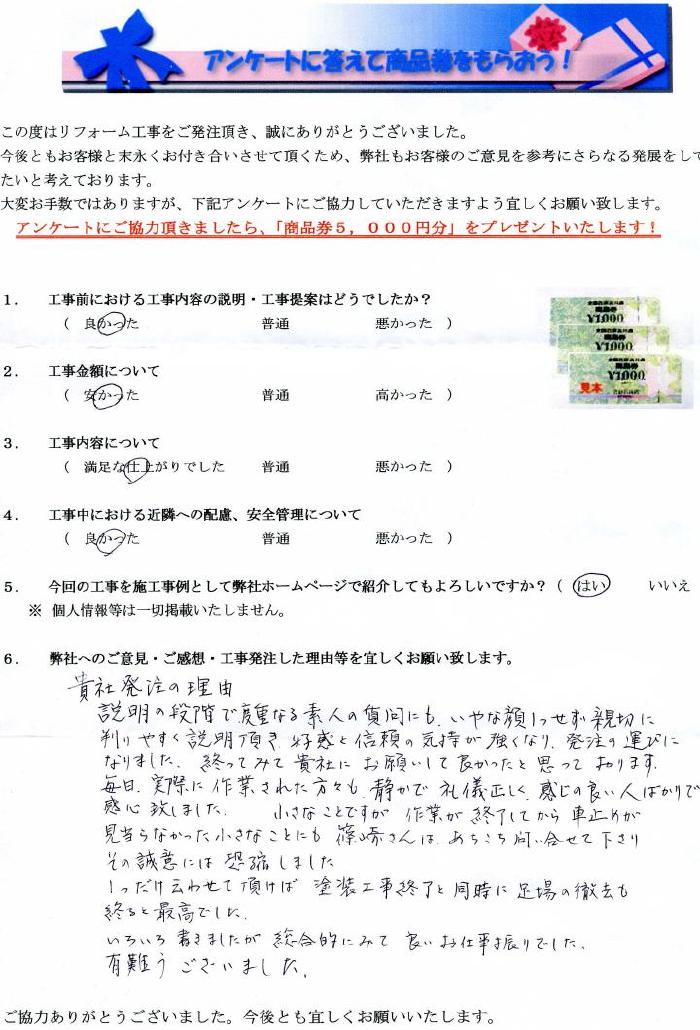 アンケートに答えて商品券をもらおう！
この度はリフォーム工事をご発注頂き、誠にありがとうございました。
今後ともお客様と末永くお付き合いさせて頂くため、弊社もお客様のご意見を参考にさらなる発展をして
たいと考えております。
大変お手数ではありますが、下記アンケートにご協力していただきますよう宜しくお願い致します。
アンケートにご協力頂きましたら、「商品券５，０００円分」をプレゼントいたします！
１． 工事前における工事内容の説明・工事提案はどうでしたか？
（ 良かった 普通 悪かった ）
商品券
¥1,000
商品券
¥1,000
商品券
¥1,000
見本
２． 工事金額について
（ 安かった 普通 高かった ）
３． 工事内容について
（ 満足な仕上がりでした 普通 悪かった ）
４． 工事中における近隣への配慮、安全管理について
（ 良かった 普通 悪かった ）
５． 今回の工事を施工事例として弊社ホームページで紹介してもよろしいですか？（ はい いいえ
※ 個人情報等は一切掲載いたしません。
６． 弊社へのご意見・ご感想・工事発注した理由等を宜しくお願い致します。
貴社発注の理由
説明の段階で度重なる素人の質問にも、いやな顔1つせず親切に
判りやすく説明頂き、好感と信頼の気持が強くなり、発注の運びに
なりました。終ってみて貴社にお願いして良かったと思っております。
毎日、実際に作業された方々も、静かで礼儀正しく、感じの良い人ばかりで
感心致しました。 小さなことですが 作業が終了してから車止めが
見当らなかった小さなことにも 篠崎さんは、あちこち問い合せて下さり
その誠意には恐縮しました
1つだけ言わせて頂けば 塗装工事終了と同時に足場の徹去も
終ると最高でした。
いろいろ書きましたが 総合的にみて 良いお仕事振りでした。
有難うございました。
ご協力ありがとうございました。今後とも宜しくお願いいたします。